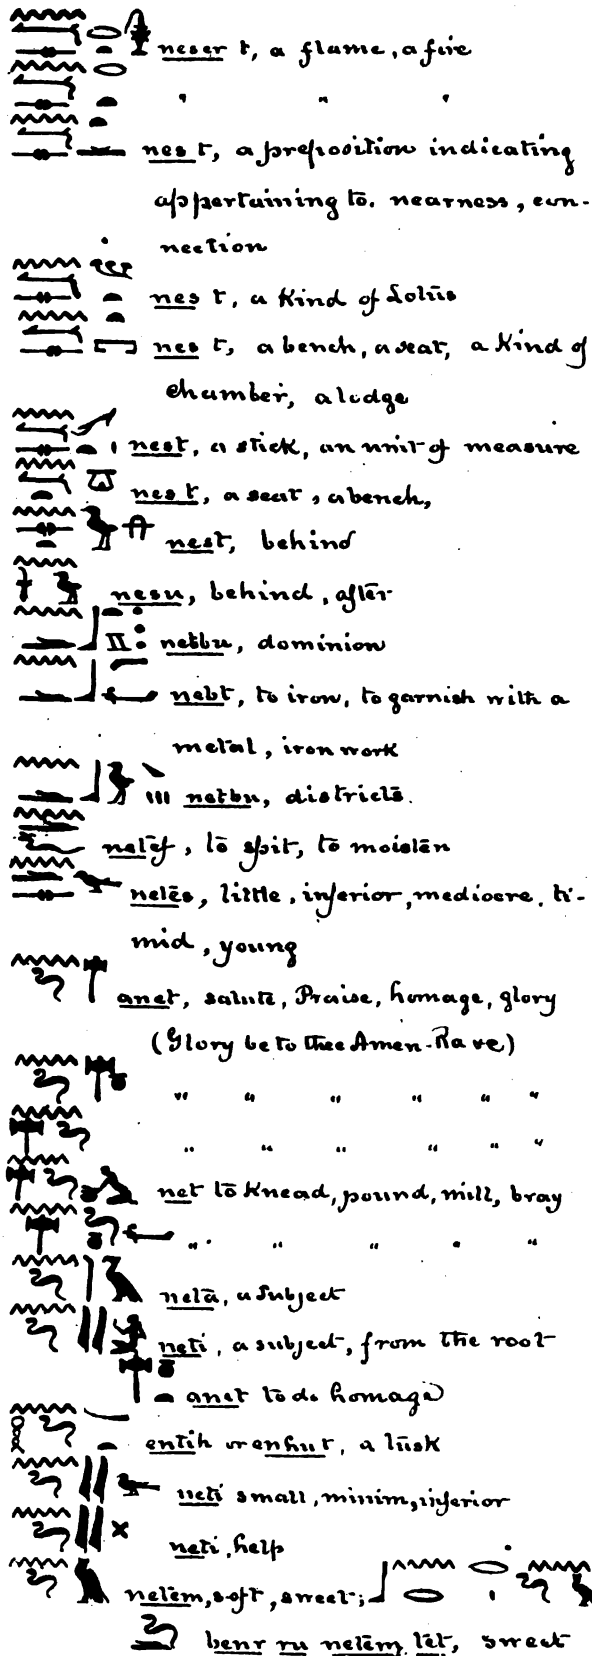 neser t, a flame, a fire
" " "
nes t, a preposition indicating
appertaining to. nearness, con-
nection
nes t, a Kind of Lotus
nes t, a bench, a seat, a Kind of
chamber, a lodge
nest, a stick, an unit of measure
nes t, a seat, a bench,
nest, behind
nesu, behind, after
netbu, dominion
nebt, to iron, to garnish with a
metal, iron work
netbu, districts.
netef, to spit, to moisten
netes, little, inferior, mediocre, ti-
mid, young
anet, salute, Praise, homage, glory
(Glory be to thee Amen-Ra ve)
" " " " " "
" " " " " "
net to Knead, pound, mill, bray
" " " " "
neta, a Subject
neti, a subject, from the root
anet to do homage
entih or enhut, a tusk
neti small, minim, inferior
neti, help
netem, soft, sweet;
benr ru netem tet, sweet